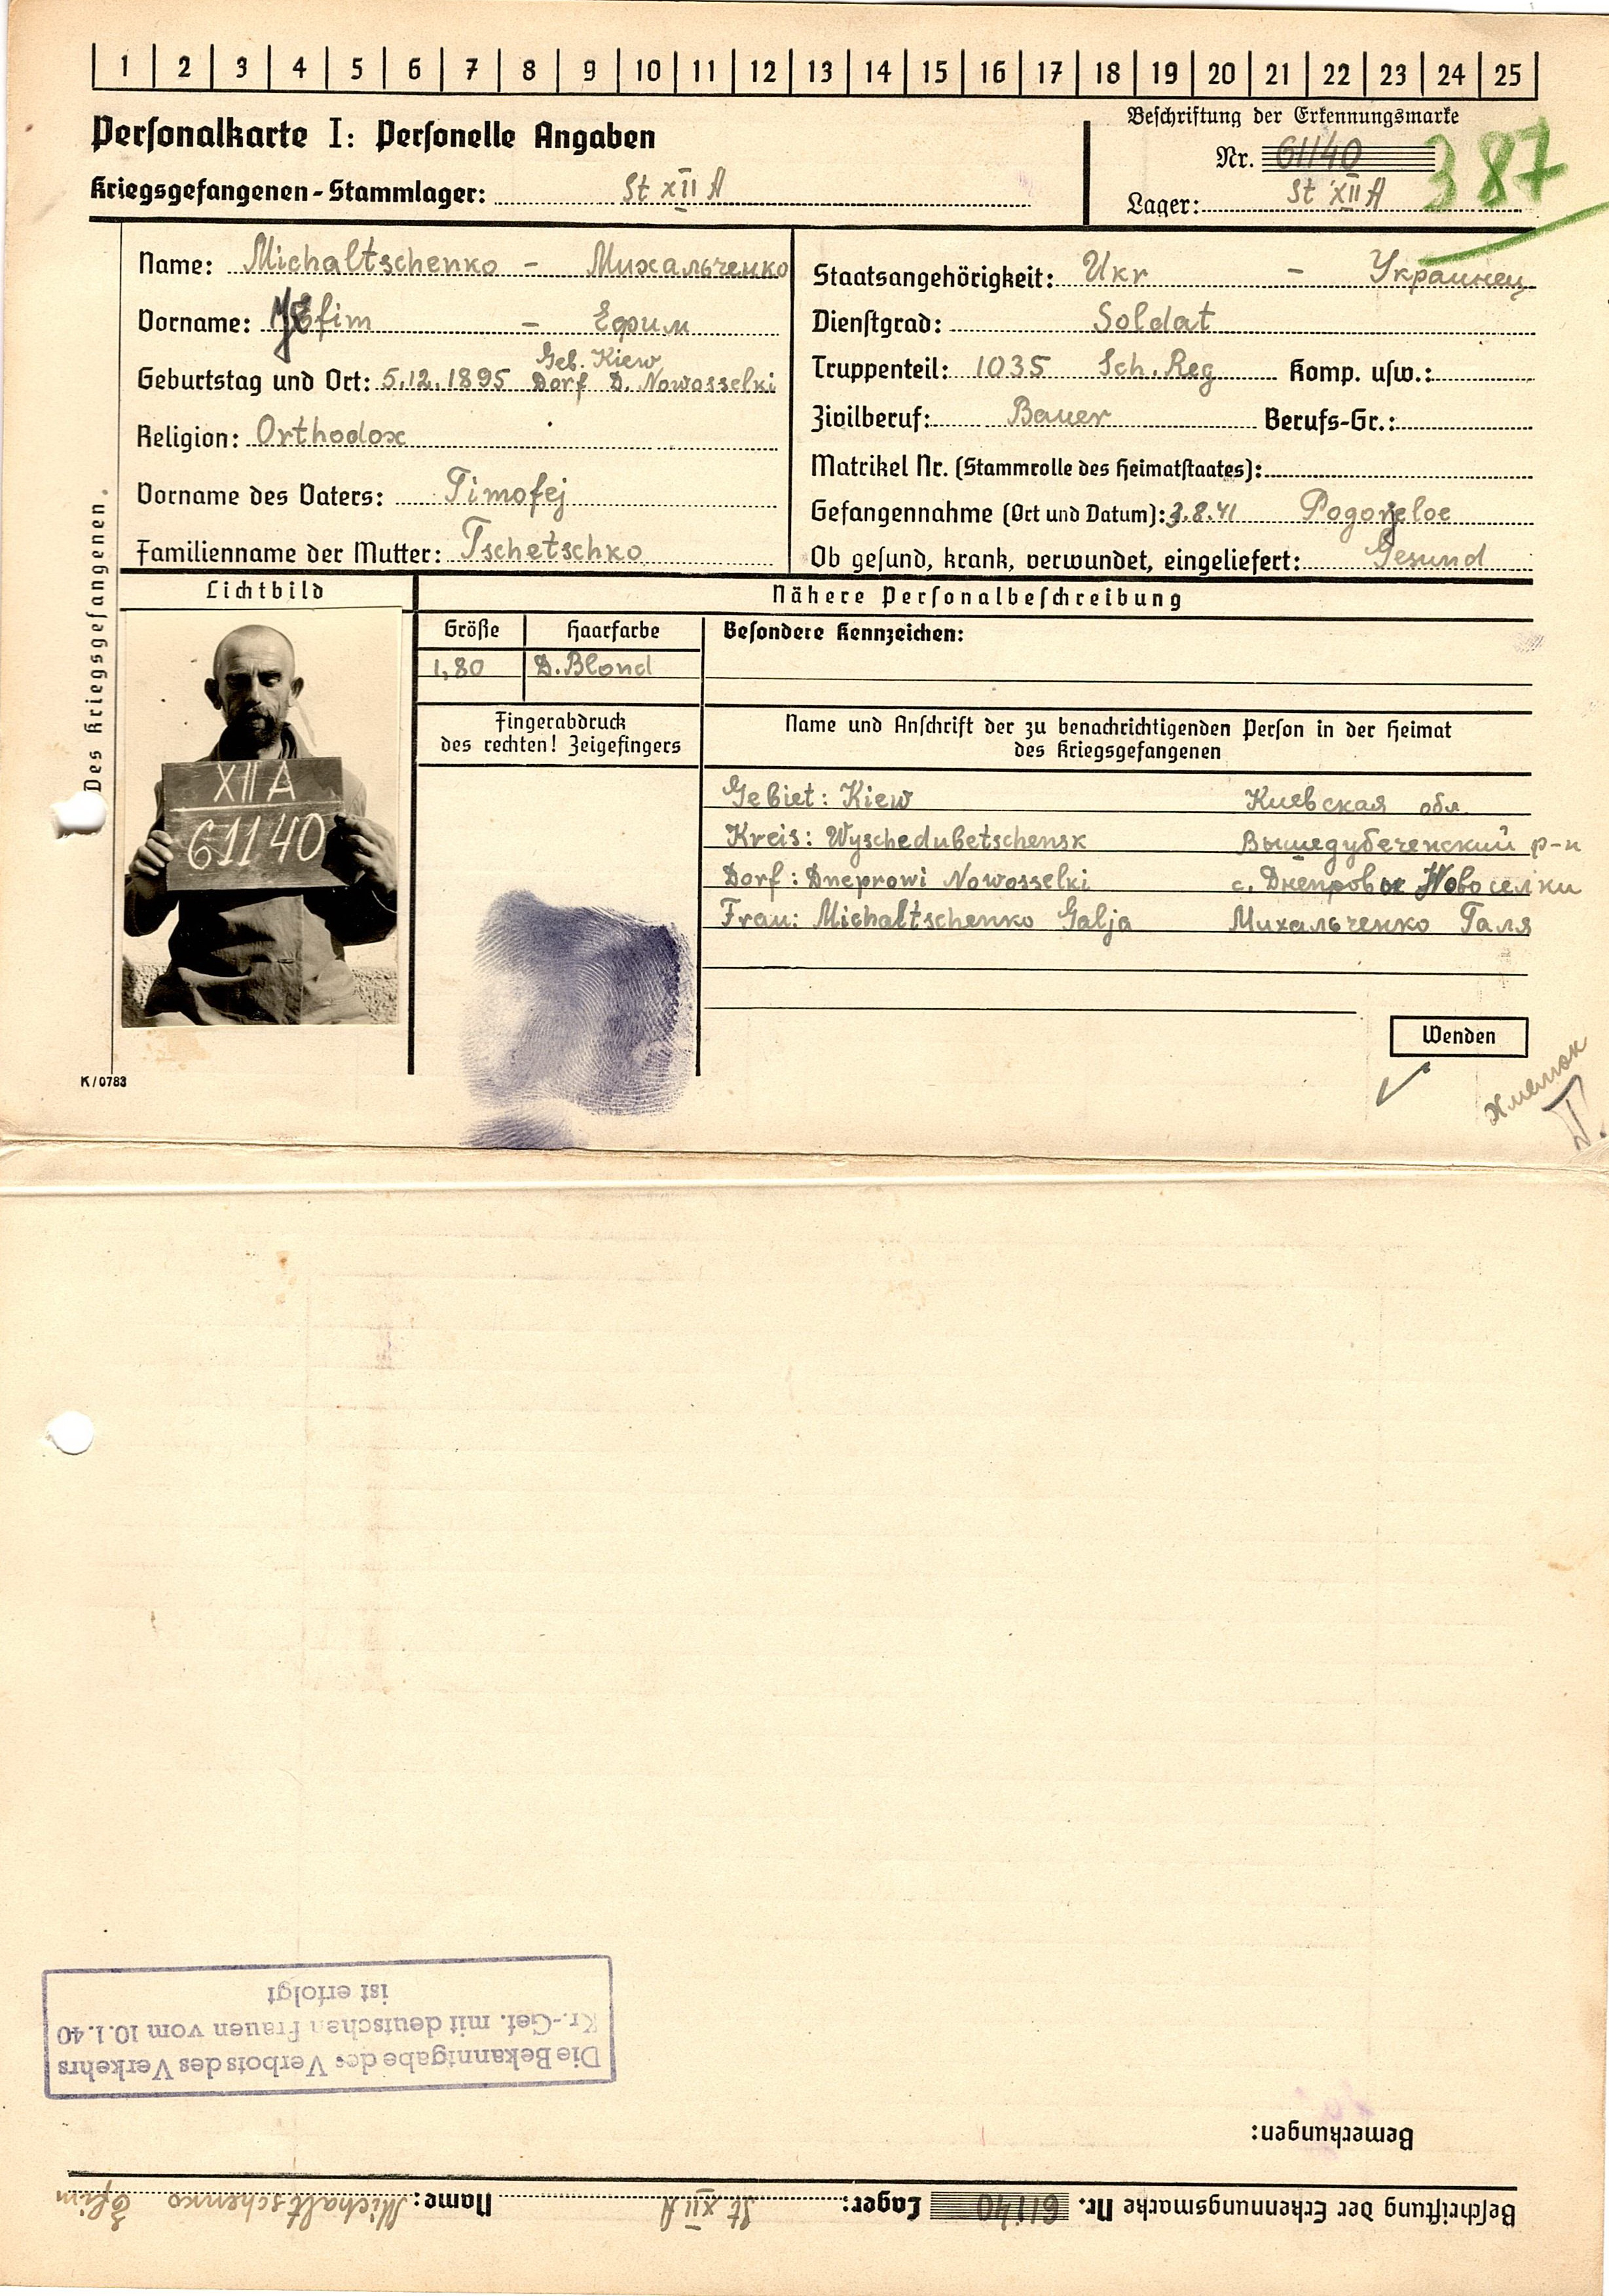 1 2 3 4 5 6 7 8 9 10 11 12 13 14 15 16 17 18 19 20 21 22 23 24 25
Personalkarte I: Personelle Angaben
Kriegsgefangenen-Stammlager: St XII A
Beschriftung der Erkennungsmarke
Nr. 61140
387
Lager: St XII A
Des Kriegsgefangenen.
Name: Michaltschenko - Михальченко
Vorname: Efim - Ефим
Geb. Kiew
Geburtstag und Ort: 5.12.1895 Dorf D. Nowosselki
Religion: Orthodox
Vorname des Vaters: Timofej
Familienname der Mutter: Tschetschko
Staatsangehörigkeit: Ukr - Украинец
Dienstgrad: Soldat
Truppenteil: 1035 Sch. Reg Komp. usw.:
Zivilberuf: Bauer Berufs-Gr.:
Matrikel Nr. (Stammrolle des Heimatstaates):
Gefangennahme (Ort und Datum): 3.8.41 Pogorjeloe
Ob gesund, krank, verwundet, eingeliefert: Gesund
Lichtbild
XII A
61140
Nähere Personalbeschreibung
Größe Haarfarbe
1,80 D. Blond
Besondere Kennzeichen:
Fingerabdruck
des rechten! Zeigefingers
Name und Anschrift der zu benachrichtigenden Person in der Heimat
des Kriegsgefangenen
Gebiet: Kiew Киевская обл.
Kreis: Wyschedubetschensk Вышедубеченский р-н
Dorf: Dneprowi Nowosselki с. Днепровые Новоселки
Frau: Michaltschenko Galja Михальченко Галя
Wenden
K/0783
Beschriftung der Erkennungsmarke Nr. 61140 Lager: St XII A Name: Michaltschenko Efim
Bemerkungen:
Die Bekanntgabe des Verbots des Verkehrs
Kr.-Gef. mit deutschen Frauen vom 10.1.40
ist erfolgt